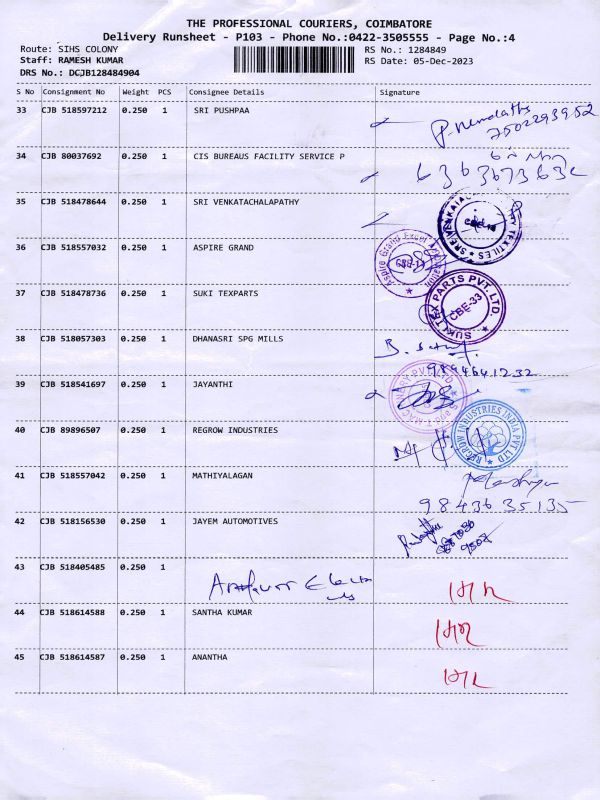 THE PROFESSIONAL COURIERS, COIMBATORE
Delivery Runsheet - P103 - Phone No.:0422-3505555 - Page No.:4
Route: SIHS COLONY
RS No.: 1284849
Staff: RAMESH KUMAR
RS Date: 05-Dec-2023
DRS No.: DCJB128484904
S No Consignment No Weight PCS Consignee Details Signature
33 CJB 518597212 0.250 1 SRI PUSHPAA
7502293952
34 CJB 80037692 0.250 1 CIS BUREAUS FACILITY SERVICE P
35 CJB 518478644 0.250 1 SRI VENKATACHALAPATHY
TEXTILES
36 CJB 518557032 0.250 1 ASPIRE GRAND
Aspire Grand Excel
37 CJB 518478736 0.250 1 SUKI TEXPARTS
SUKI TEX PARTS PVT. LTD.
CBE-33
38 CJB 518057303 0.250 1 DHANASRI SPG MILLS
39 CJB 518541697 0.250 1 JAYANTHI
40 CJB 89896507 0.250 1 REGROW INDUSTRIES
REGROW INDUSTRIES INDIA PVT LTD
41 CJB 518557042 0.250 1 MATHIYALAGAN
9843635135
42 CJB 518156530 0.250 1 JAYEM AUTOMOTIVES
43 CJB 518405485 0.250 1
44 CJB 518614588 0.250 1 SANTHA KUMAR
45 CJB 518614587 0.250 1 ANANTHA